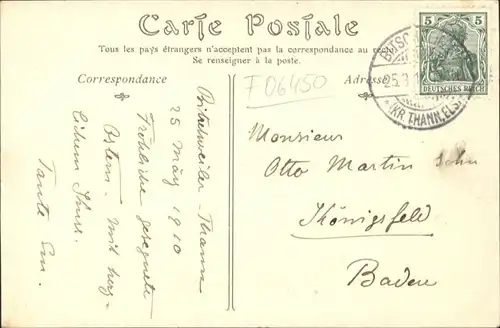 Carte Postale
Tous les pays étrangers n'acceptent pas la correspondance au recto
Se renseigner à la poste.
Correspondance
Adresse
F06450
5 5
DEUTSCHES REICH
BITSC
25.3.1
(KR. THANN, ELS.)
Bitschweiler-Thann
25 März 1910
Fröhliche gesegnete
Ostern. Mit herz-
Tante Em.
Monsieur
Otto Martin Sohn
Königsfeld
Baden